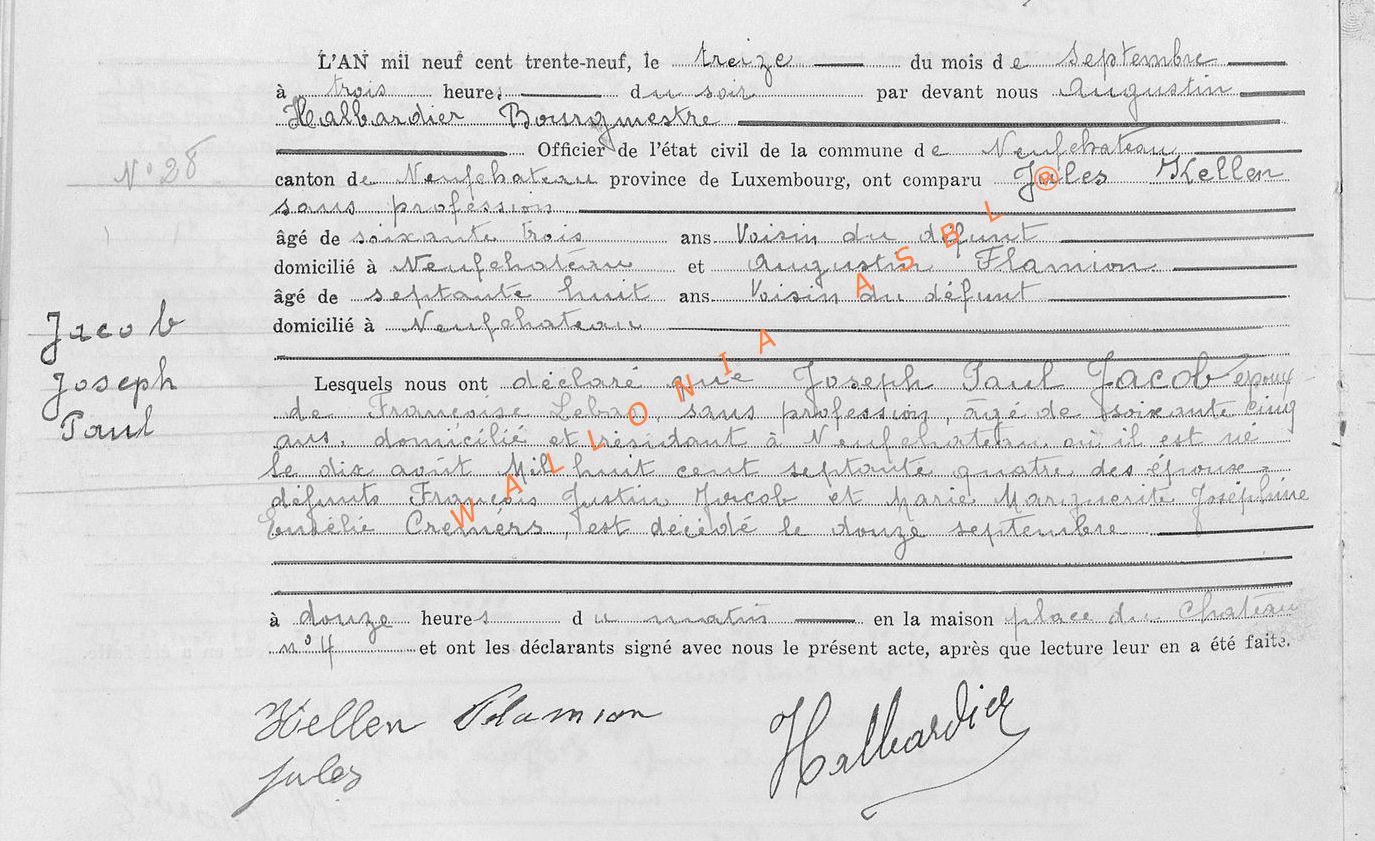 L'AN mil neuf cent trente-neuf, le treize du mois de Septembre
à trois heures du soir par devant nous Augustin
Halbardier Bourgmestre
Officier de l'état civil de la commune de Neufchateau
N° 28
canton de Neufchateau province de Luxembourg, ont comparu Jules Kellen
sans profession
âgé de soixante trois ans Voisin du défunt
domicilié à Neufchateau et Augustin Flamion
âgé de septante huit ans Voisin du défunt
domicilié à Neufchateau
Jacob
Joseph
Paul
Lesquels nous ont déclaré que Joseph Paul Jacob époux
de Françoise, sans profession, âgé de soixante cinq
ans, domicilié et résidant à Neufchateau où il est né
le dix août Mil huit cent septante quatre des époux
défunts François Justin Jacob et Marie Marguerite Joséphine
est décédé le douze septembre
à douze heures du matin en la maison place du Chateau
n° 4 et ont les déclarants signé avec nous le présent acte, après que lecture leur en a été faite.
Kellen Flamion Halbardier
Jules
WALLONIA ASBL ®